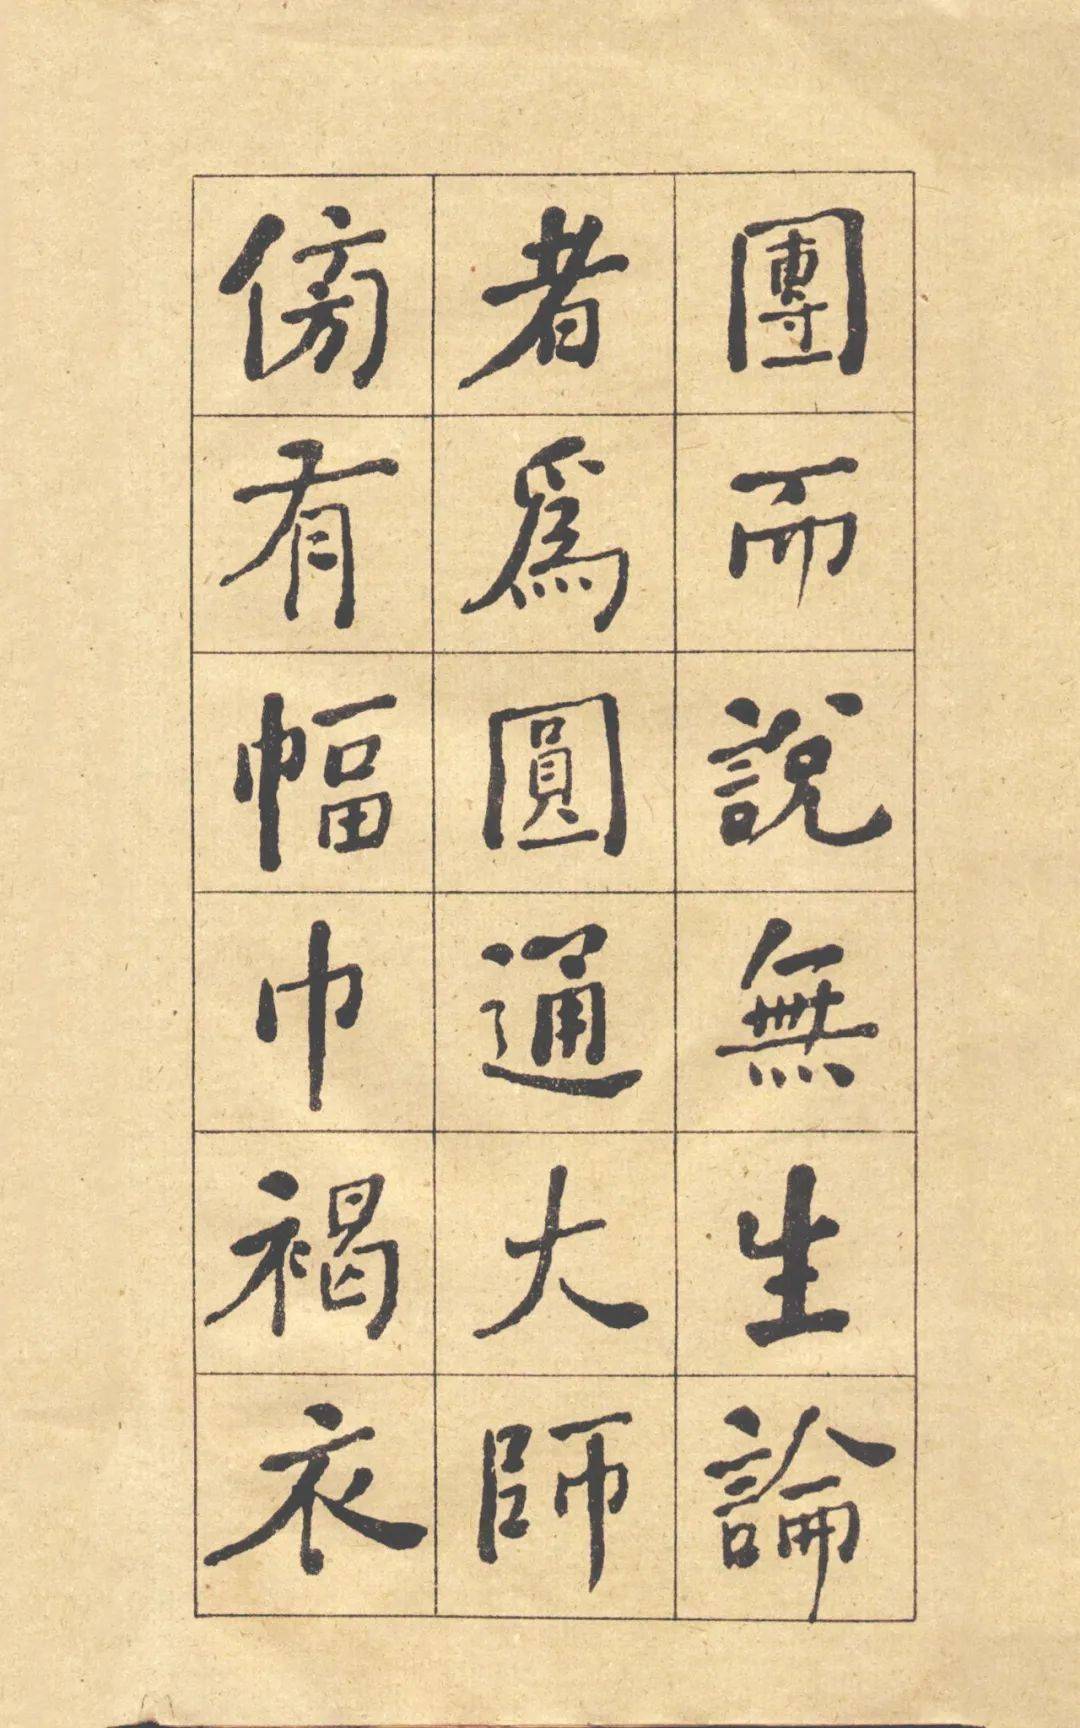 團而說無生論
者爲圓通大師
傍有幅巾褐衣